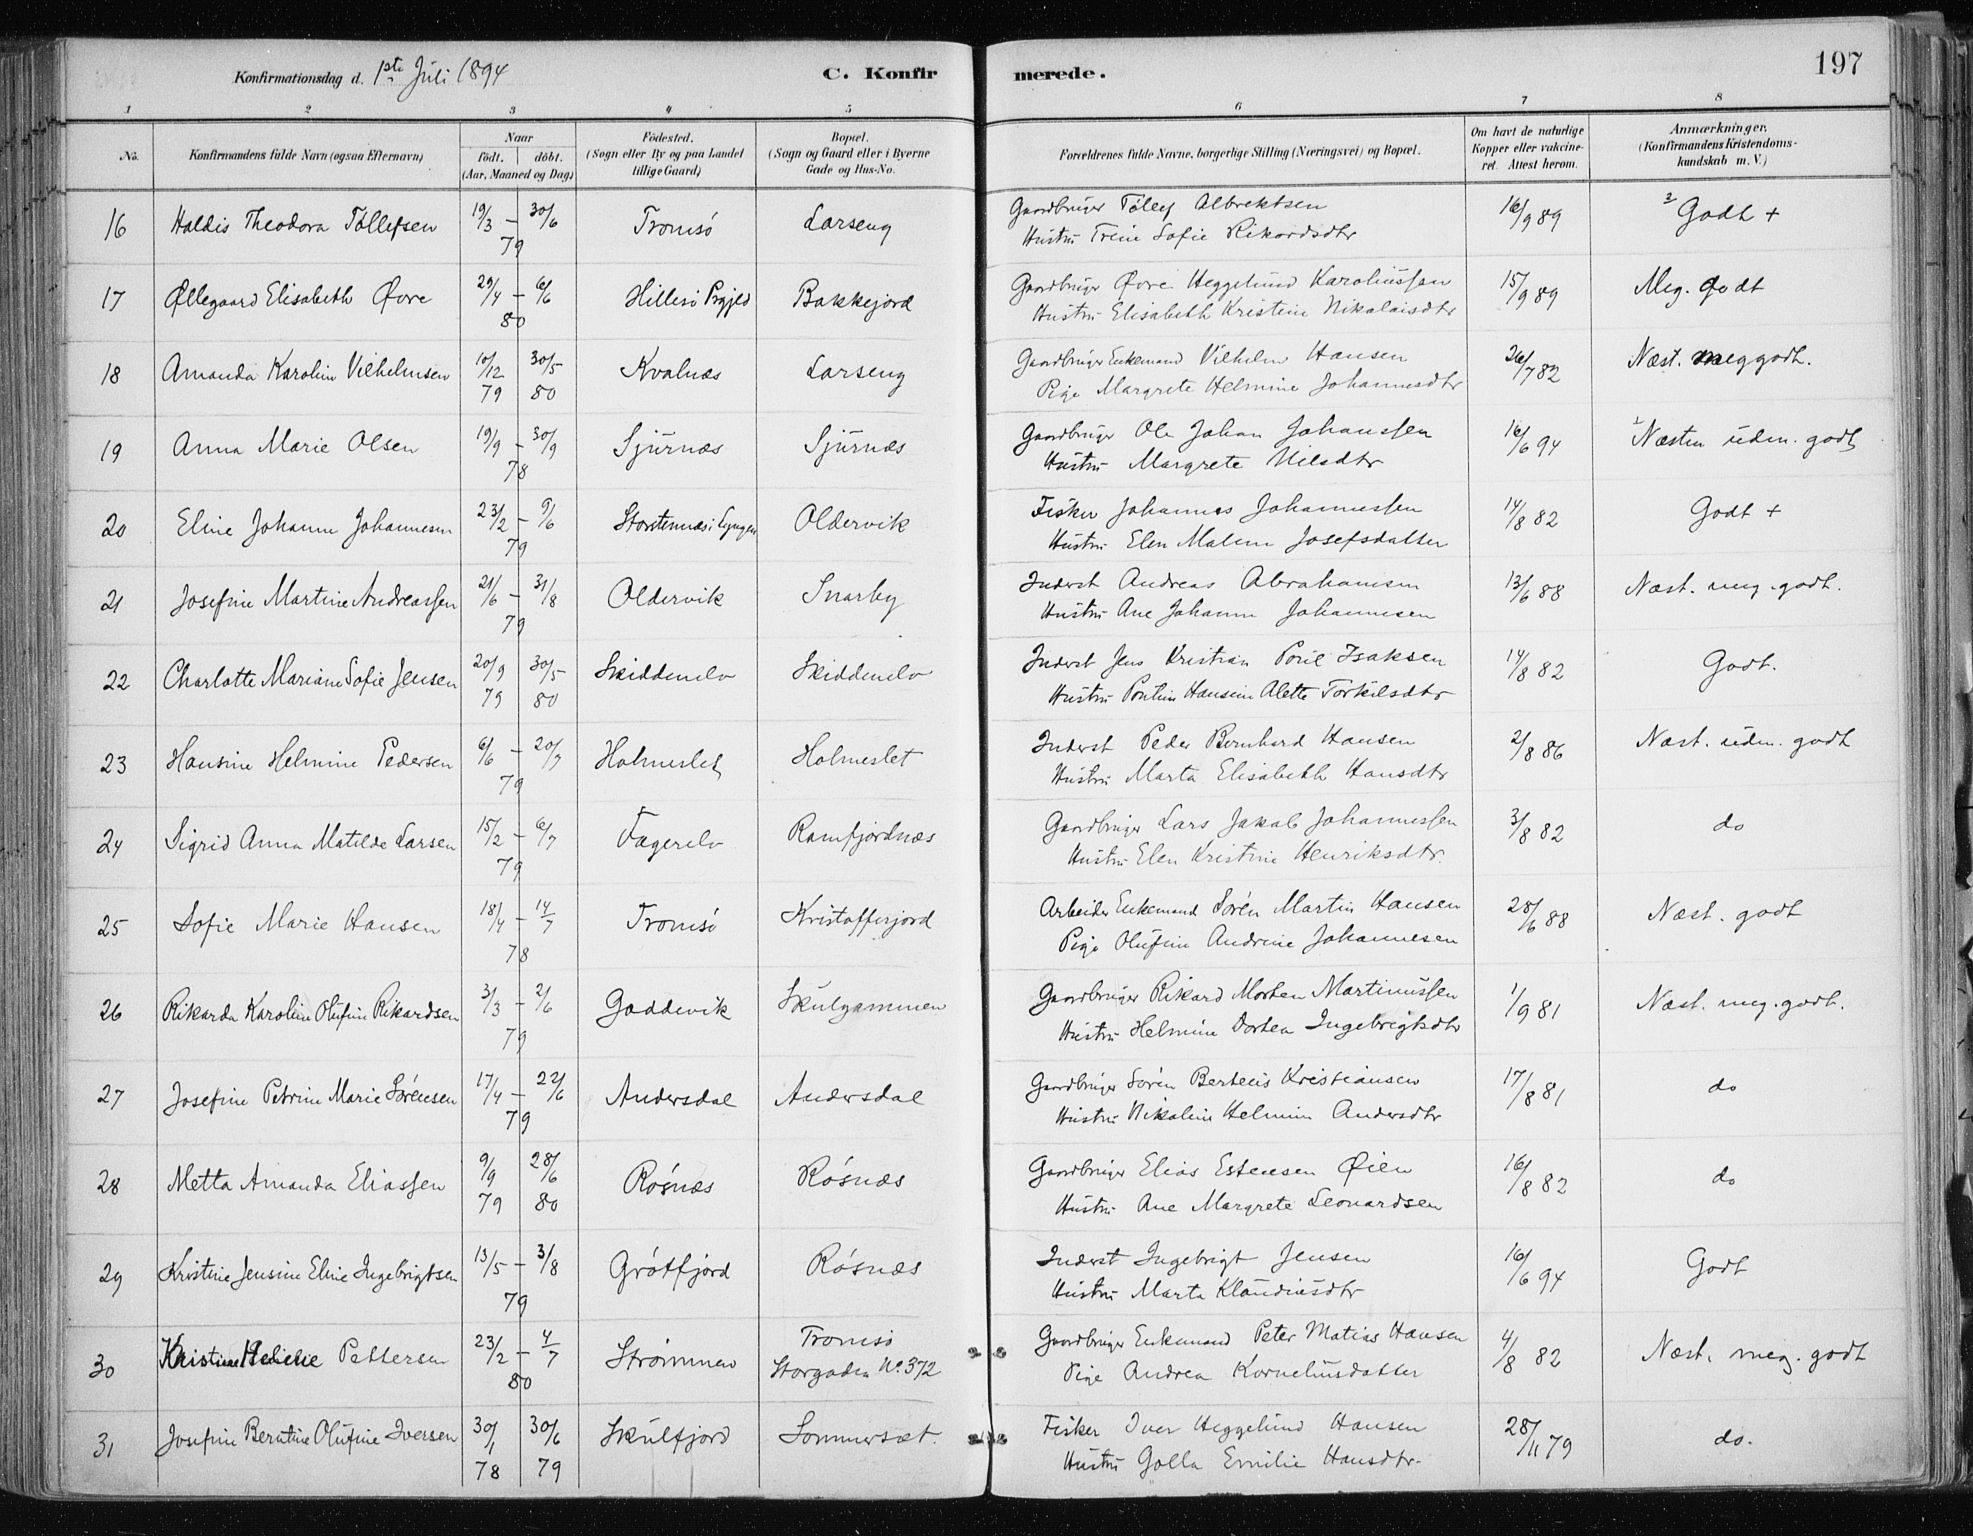 Konfirmationsdag d. 1ste Juli 1894 C. Konfirmerede. 197
1 2 3 4 5 6 7 8
No. Konfirmandens fulde Navn (ogsaa Efternavn) Naar födt. döbt. (Aar, Maaned og Dag) Födested. (Sogn eller By og paa Landet tillige Gaard) Bopæl. (Sogn og Gaard eller i Byerne Gade og Hus-No. Forældrenes fulde Navne, borgerlige Stilling (Næringsvei) og Bopæl. Om havt de naturlige Kopper eller vakcineret. Attest herom. Anmærkninger. (Konfirmandens Kristendomskundskab m. V.)
16 Haldis Theodora Tollefsen 19/3 – 30/6 79 Tromsö Larseng Gaardbruger Tølley Albrektsen 16/9 89 2 Godt +
Hustru Trine Sofie Rikardsdtr
17 Øllegaard Elisabeth Øvre 29/4 – 6/6 80 Hillesö Prgjeld Bakkejord Gaardbruger Øvre Heggelund Karoliussen 15/9 89 Meg. godt
Hustru Elisabeth Kristine Nikolaisdtr
18 Amanda Karoline Vilhelmsen 10/12 79 30/5 80 Kvalnæs Larseng Gaardbruger Enkemand Vilhelm Hansen 26/7 82 Næst. meg godt.
Pige Margrete Helmine Johannesdtr
19 Anna Marie Olsen 19/9 – 30/9 78 Sjurnæs Sjurnæs Gaardbruger Ole Johan Johanssen 16/6 94 1 Næsten udm. godt
Hustru Margrete Nilsdtr
20 Eline Johanne Johannesen 23/2 – 9/6 79 Storstennæs i Lyngen Oldervik Fisker Johannes Johannessen 14/8 82 Godt +
Hustru Elen Malene Josefsdatter
21 Josefine Martine Andreassen 21/6 – 31/8 79 Oldervik Snarby Inderst Andreas Abrahamsen 13/6 88 Næst. meg. godt.
Hustru Ane Johanne Johannesen
22 Charlotte Mariane Sofie Jensen 20/9 79 30/5 80 Skiddenelv Skiddenelv Inderst Jens Kristian Poul Isaksen 14/8 82 Godt.
Hustru Pontine Hansine Alette Torkilsdtr
23 Hansine Helmine Pedersen 6/6 – 20/7 79 Holmeslet Holmeslet Inderst Peder Bernhard Hansen 2/8 86 Næst. udm. godt
Hustru Marta Elisabeth Hansdtr
24 Sigrid Anna Matilde Larsen 15/2 – 6/7 79 Fagerelv Ramfjordnæs Gaardbruger Lars Jakob Johannessen 3/8 82 do
Hustru Elen Kristine Henriksdtr.
25 Sofie Marie Hansen 18/4 – 14/7 78 Tromsö Kristofferjord Arbeider Enkemand Sören Martin Hansen 28/6 88 Næst. godt
Pige Olufine Andrine Johannesen
26 Rikarda Karoline Olufine Rikardsen 3/3 – 2/6 79 Gaddevik Skulgammen Gaardbruger Rikard Morten Martinussen 1/9 81 Næst. meg. godt.
Hustru Helmine Dortea Ingebrigtsdtr
27 Josefine Petrine Marie Sörensen 17/4 – 22/6 79 Andersdal Andersdal Gaardbruger Sören Berteus Kristiansen 17/8 81 do
Hustru Nikoline Helmine Andersdtr
28 Metta Amanda Eliassen 9/9 79 28/6 80 Rösnæs Rösnæs Gaardbruger Elias Estensen Øien 16/8 82 do
Hustru Ane Margrete Leonardsen
29 Kristine Jensine Eline Ingebrigtsen 13/5 – 3/8 79 Grötfjord Rösnæs Inderst Ingebrigt Jensen 16/6 94 Godt
Hustru Marta Klaudiusdtr
30 Kristine Pettersen 23/2 – 4/7 80 Strömmen Tromsö Storgaden No. 372 Gaardbruger Enkemand Peter Matias Hansen 4/8 82 Næst. meg. godt
Pige Andrea Korneliusdatter
31 Josefine Berntine Olufine Iversen 30/1 78 30/6 79 Skulfjord Sommersæt. Fisker Iver Heggelund Hansen 28/11 79 do.
Hustru Golla Emilie Hansdtr.